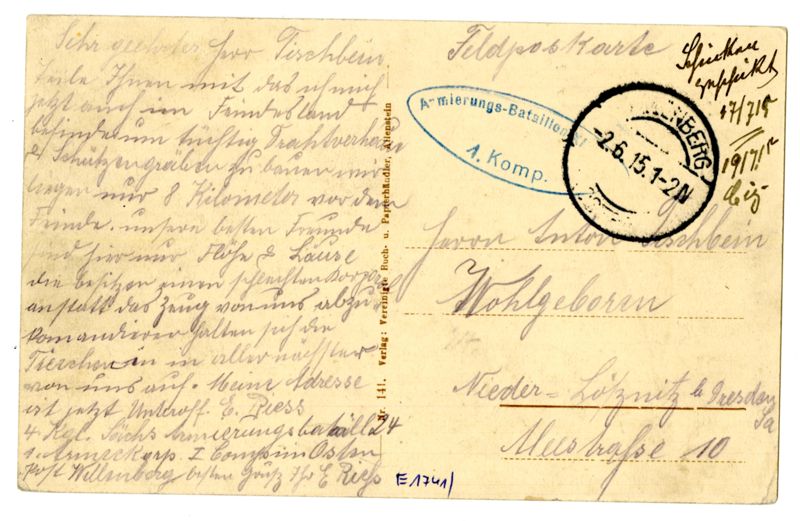 Sehr geehrter Herr Tischbein
teile Ihnen mit das ich mich
jetzt auch im Feindesland
befinde um tüchtig Drahtverhaue
& Schützengräben zu bauen wir
liegen nur 8 Kilometer vor dem
Feinde. unsere besten Freunde
sind hier nur Flöhe & Läuse
die besitzen einen schlechten
anstatt das Zeug von uns abzu-
komandieren halten sich die
Tierchen in aller nächster
von uns auf. Meine Adresse
ist jetzt Untroff. E. Riess
4 Kgl. Sächs Armierungsbataill 24
1. I Comp im Osten
Post Willenberg besten Gruß Ihr E Riess
Nr. 141. Verlag: Vereinigte Buch- u. Papierhändler, Allenstein
Feldpostkarte
Armierungs-Bataillon
1. Komp.
LENBERG
-2.6.15.1-2N
Schinken
geschickt
17/7 15
19/7.15
Herrn Anton Tischbein
Wohlgeboren
Nieder-Lößnitz b Dresden
Sa
Meistrasse 10
E1741/